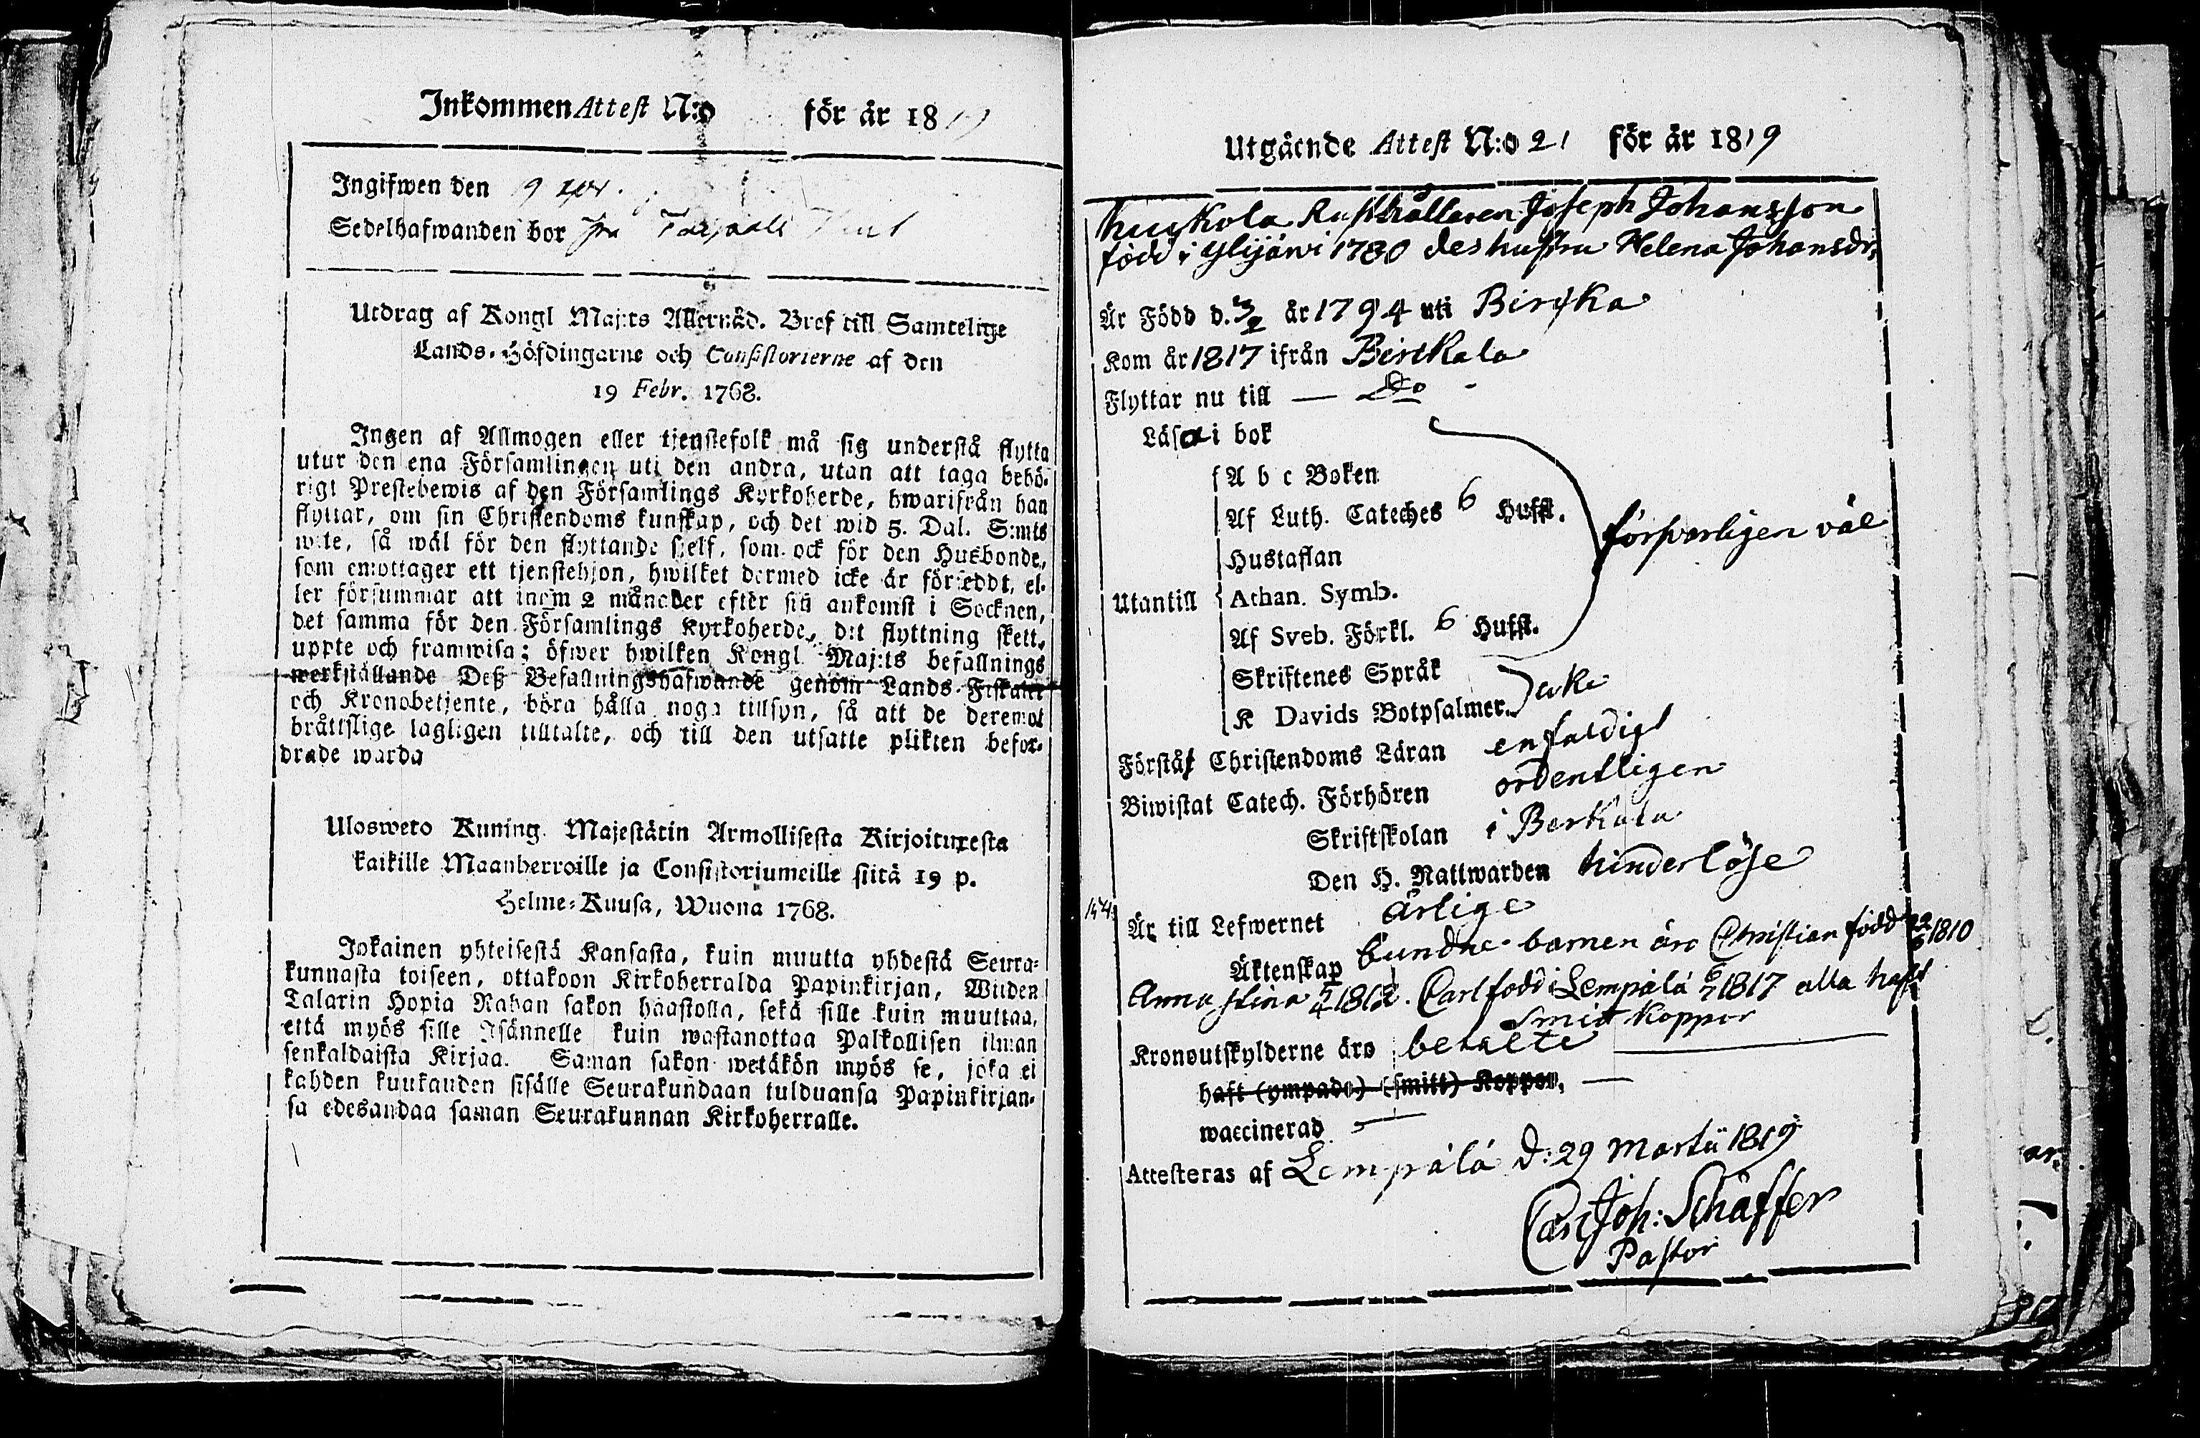 Inkommen Attest N:o för år 1819
Ingifwen den 9 apr.
Sedelhafwanden bor
Utdrag af Kongl Maj:ts Allernåd. Bref till Samtelige
Lands-Höfdingarne och Consistorierne af den
19 Febr. 1768.
Ingen af Allmogen eller tjenstefolk må sig understå flytta
utur den ena Församlingen uti den andra, utan att taga behö-
rigt Prestebewis af den Församlings Kyrkoherde, hwarifrån han
flyttar, om sin Christendoms kunskap, och det wid 5. Dal. S:mts
wite, så wäl för den flyttande sjelf, som ock för den Husbonde,
som emottager ett tjenstehjon, hwilket dermed icke är försedt, el-
ler försummar att inom 2 månader efter sin ankomst i Socknen,
det samma för den Församlings Kyrkoherde, dit flyttning skett,
uppte och framwisa; öfwer hwilken Kongl Maj:ts befallnings
werkställande Deß Befallningshafwande genom Lands-Fiskaler
och Kronobetjente, böra hålla noga tillsyn, så att de deremot
bråttslige lagligen tilltalte, och till den utsatte plikten befor-
drade warda
Ulosweto Kuning. Majestätin Armollisesta Kirjoituxesta
kaikille Maanherroille ja Consistoriumeille siitä 19 p.
Helme-Kuusa, Wuona 1768.
Jokainen yhteisestä Kansasta, kuin muutta yhdestä Seura-
kunnasta toiseen, ottakoon Kirkoherralda Papinkirjan, Wiiden
Talarin Hopia Rahan sakon haastolla, sekä sille kuin muuttaa,
että myös sille Isännelle kuin wastanottaa Palkollisen ilman
senkaldaista Kirjaa. Saman sakon wetäkön myös se, joka ei
kahden kuukauden sisälle Seurakundaan tulduansa Papinkirjan-
sa edesandaa saman Seurakunnan Kirkoherralle.
Utgående Attest N:o 21 för år 1819
Rusthållaren Joseph Johansson
född i Ylijärwi 1780 des hustru Helena Johansdr,
Är Född d. 3/2 år 1794 uti Birkka
Kom år 1817 ifrån Birckala
Flyttar nu till — Do -
Läsa i bok
A b c Boken
Af Luth. Cateches 6 Hufst.
Hustaflan
försvarligen väl
Utantill Athan. Symb.
Af Sveb. Förkl. 6 Hufst.
Skriftenes Språk
K Davids Botpsalmer. icke
Förstår Christendoms Läran enfaldigt
Biwistat Catech. Förhören ordentligen
Skriftskolan i Berkala
Den H. Nattwarden hinderlöse
Är till Lefwernet ärlige
Äktenskap bundne. barnen äro Christian född 22/6 1810
Anna Stina 1812. Carl född i Lempälä 1817 alla haft
Smit Koppor
Kronoutskylderne äro betalte
haft (ympade) (smitt) Koppor,
waccinerad
Attesteras af Lempälä d: 29 Martii 1819
Carl Joh: Schäffer
Pastor